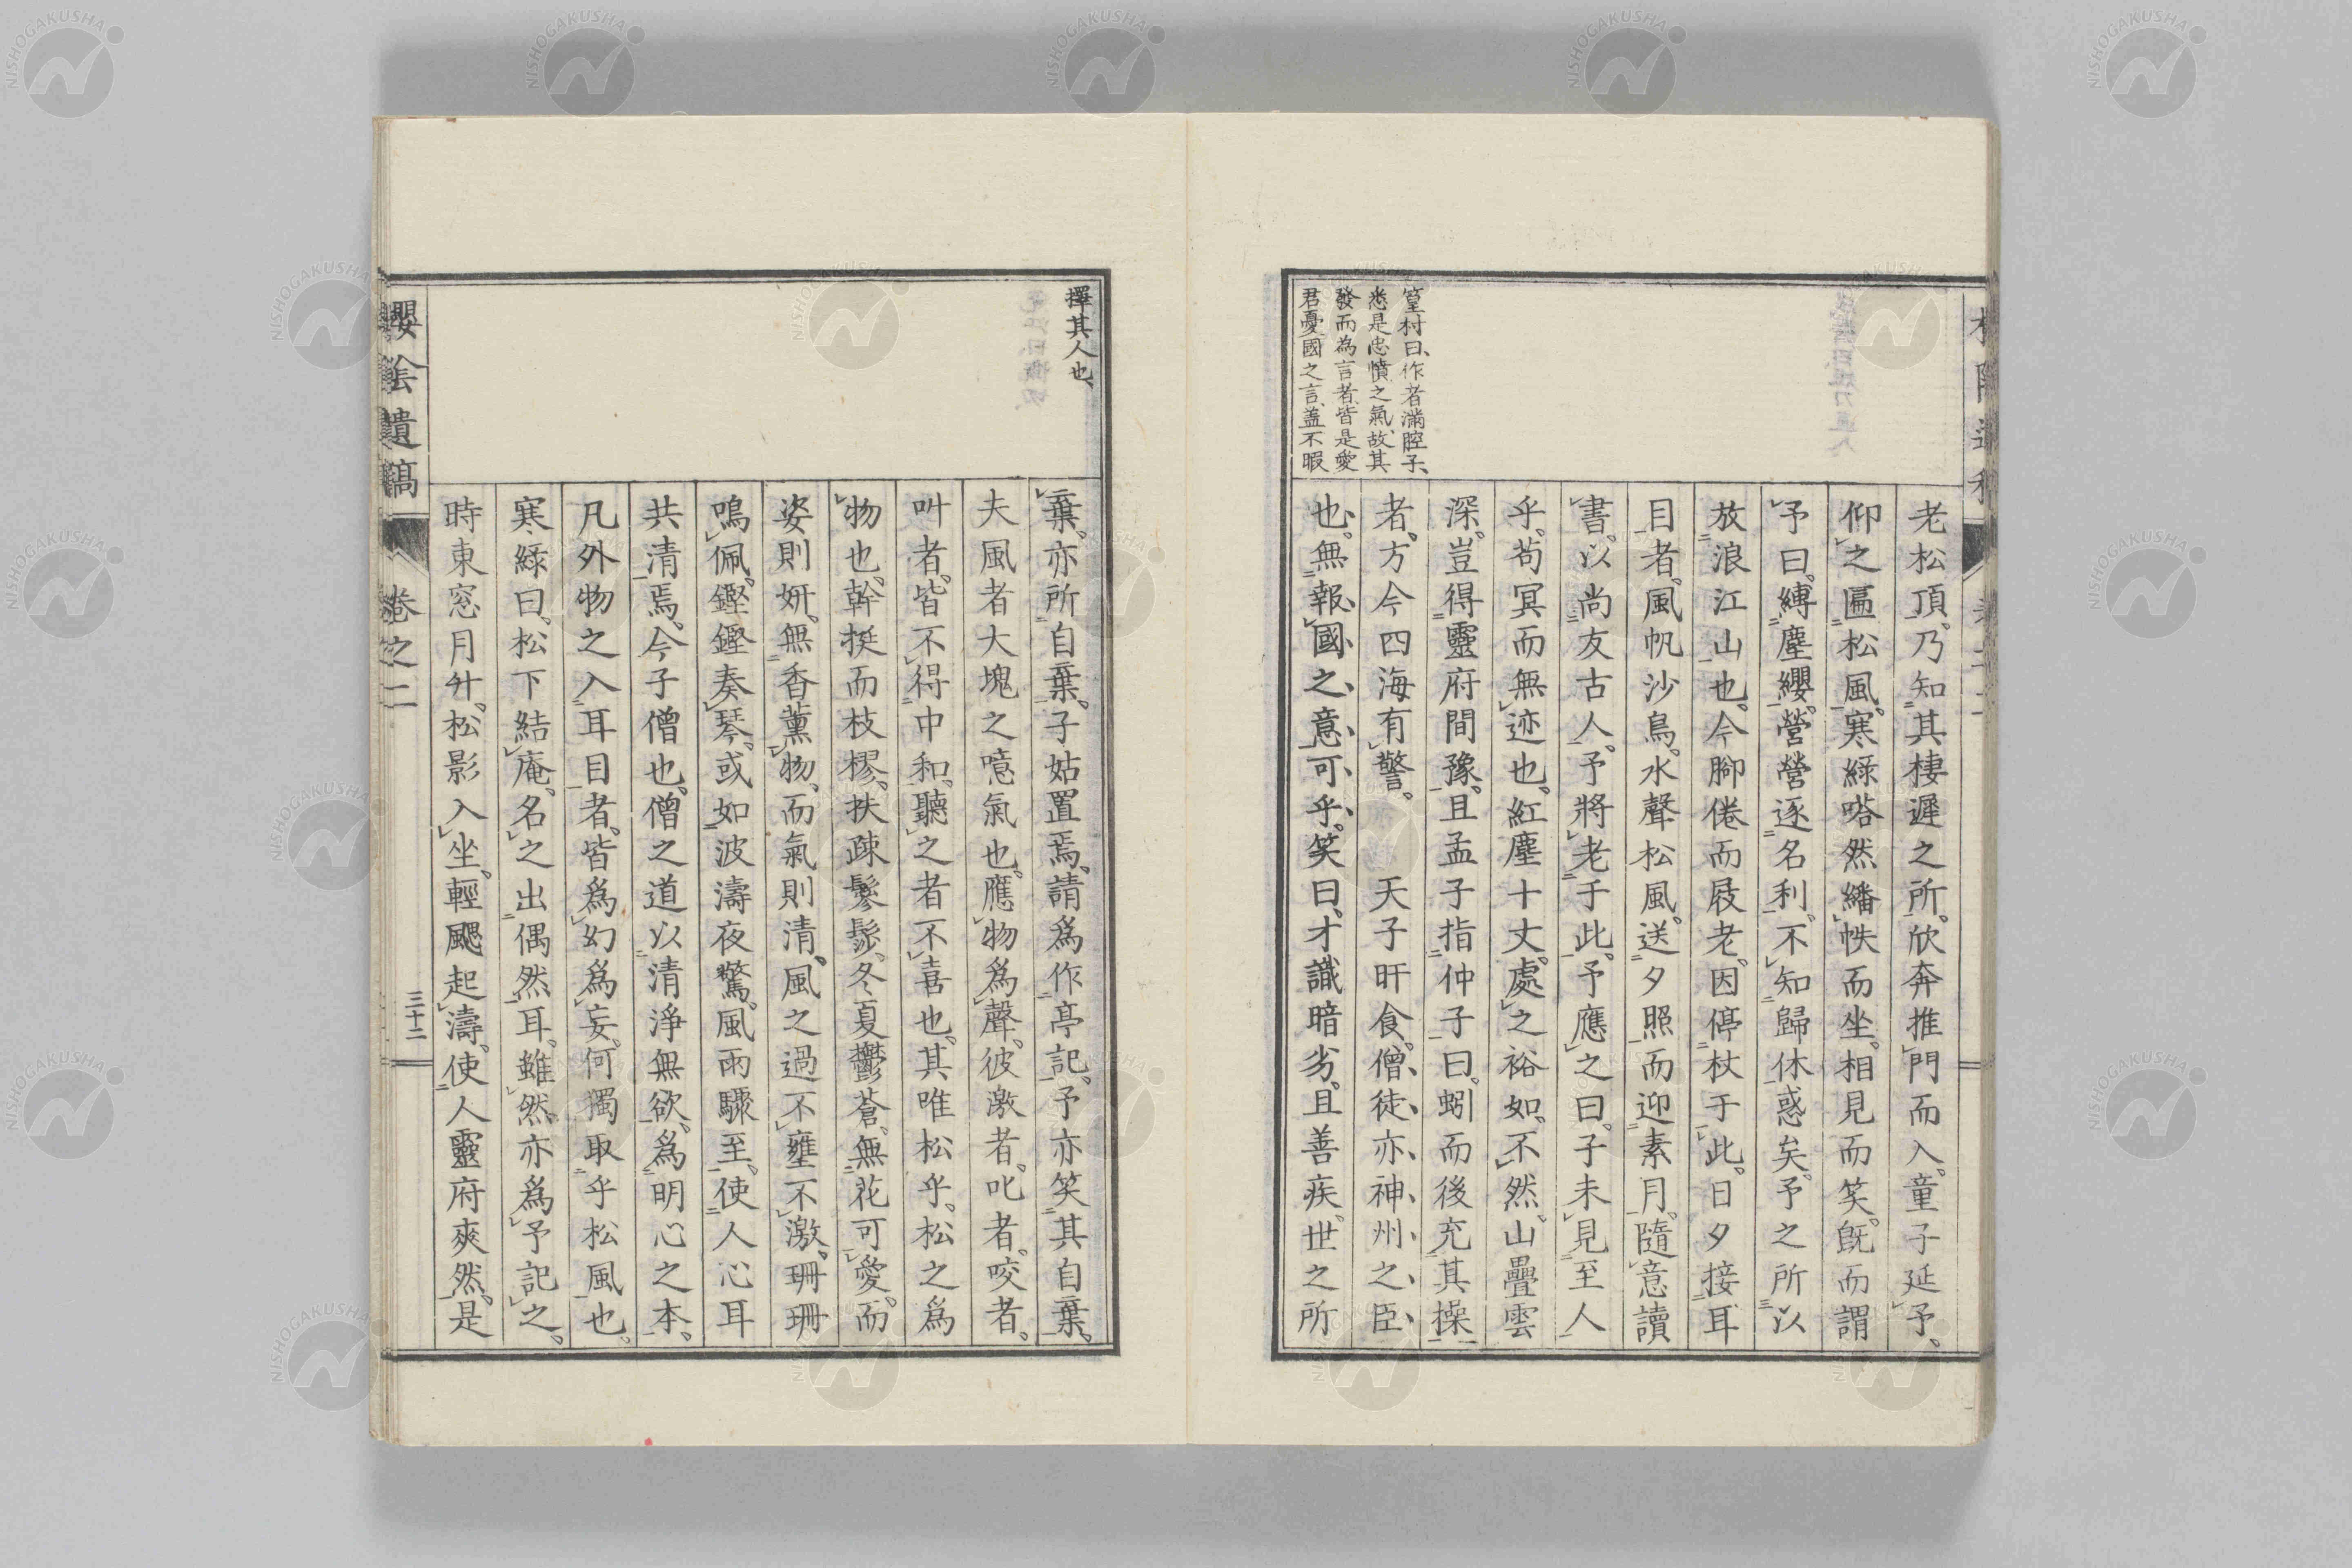 老松頂。乃知其棲遲之所。欣奔推門而入。童子延予。
仰之匾松風。寒綠嗒然繙帙而坐。相見而笑。既而謂
予曰。縛塵纓。營營逐名利。不知歸休惑矣。予之所以
放浪江山也。今腳倦而屐老。因停杖于此。日夕接耳
目者。風帆沙鳥。水聲松風。送夕照而迎素月。隨意讀
書。以尚友古人。予將老于此。予應之曰。子未見至人
乎。苟冥而無迹也。紅塵十丈。處之裕如。不然。山疊雲
深。豈得靈府間豫。且孟子指仲子曰。蚓而後充其操
者。方今四海有警。天子旰食。僧徒亦神州之臣、
也。無報國之意可乎。笑曰、才識暗劣、且善疾。世之所
篁村曰、作者滿腔子、
悉是忠憤之氣、故其
發而為言者、皆是愛
君憂國之言、蓋不暇
擇其人也、
棄。亦所自棄。子姑置焉。請爲作亭記。予亦笑其自棄。
夫風者大塊之噫氣也。應物爲聲。彼激者。叱者。咬者。
叫者。皆不得中和。聽之者不喜也。其唯松乎。松之爲
物也。幹挺而枝樛。扶疎鬖髿。冬夏鬱蒼。無花可愛。而
姿則妍。無香薰物。而氣則清。風之過不壅不激。珊珊
鳴佩。鏗鏗奏琴。或如波濤夜驚。風雨驟至。使人心耳
共清焉。今子僧也。僧之道以清淨無欲。爲明心之本。
凡外物之入耳目者。皆爲幻爲妄。何獨取乎松風也。
寒綠曰。松下結庵。名之出偶然耳。雖然亦爲予記之。
時東窓月升。松影入坐。輕颸起濤。使人靈府爽然。是
櫻陰遺稿
卷之二
三十二